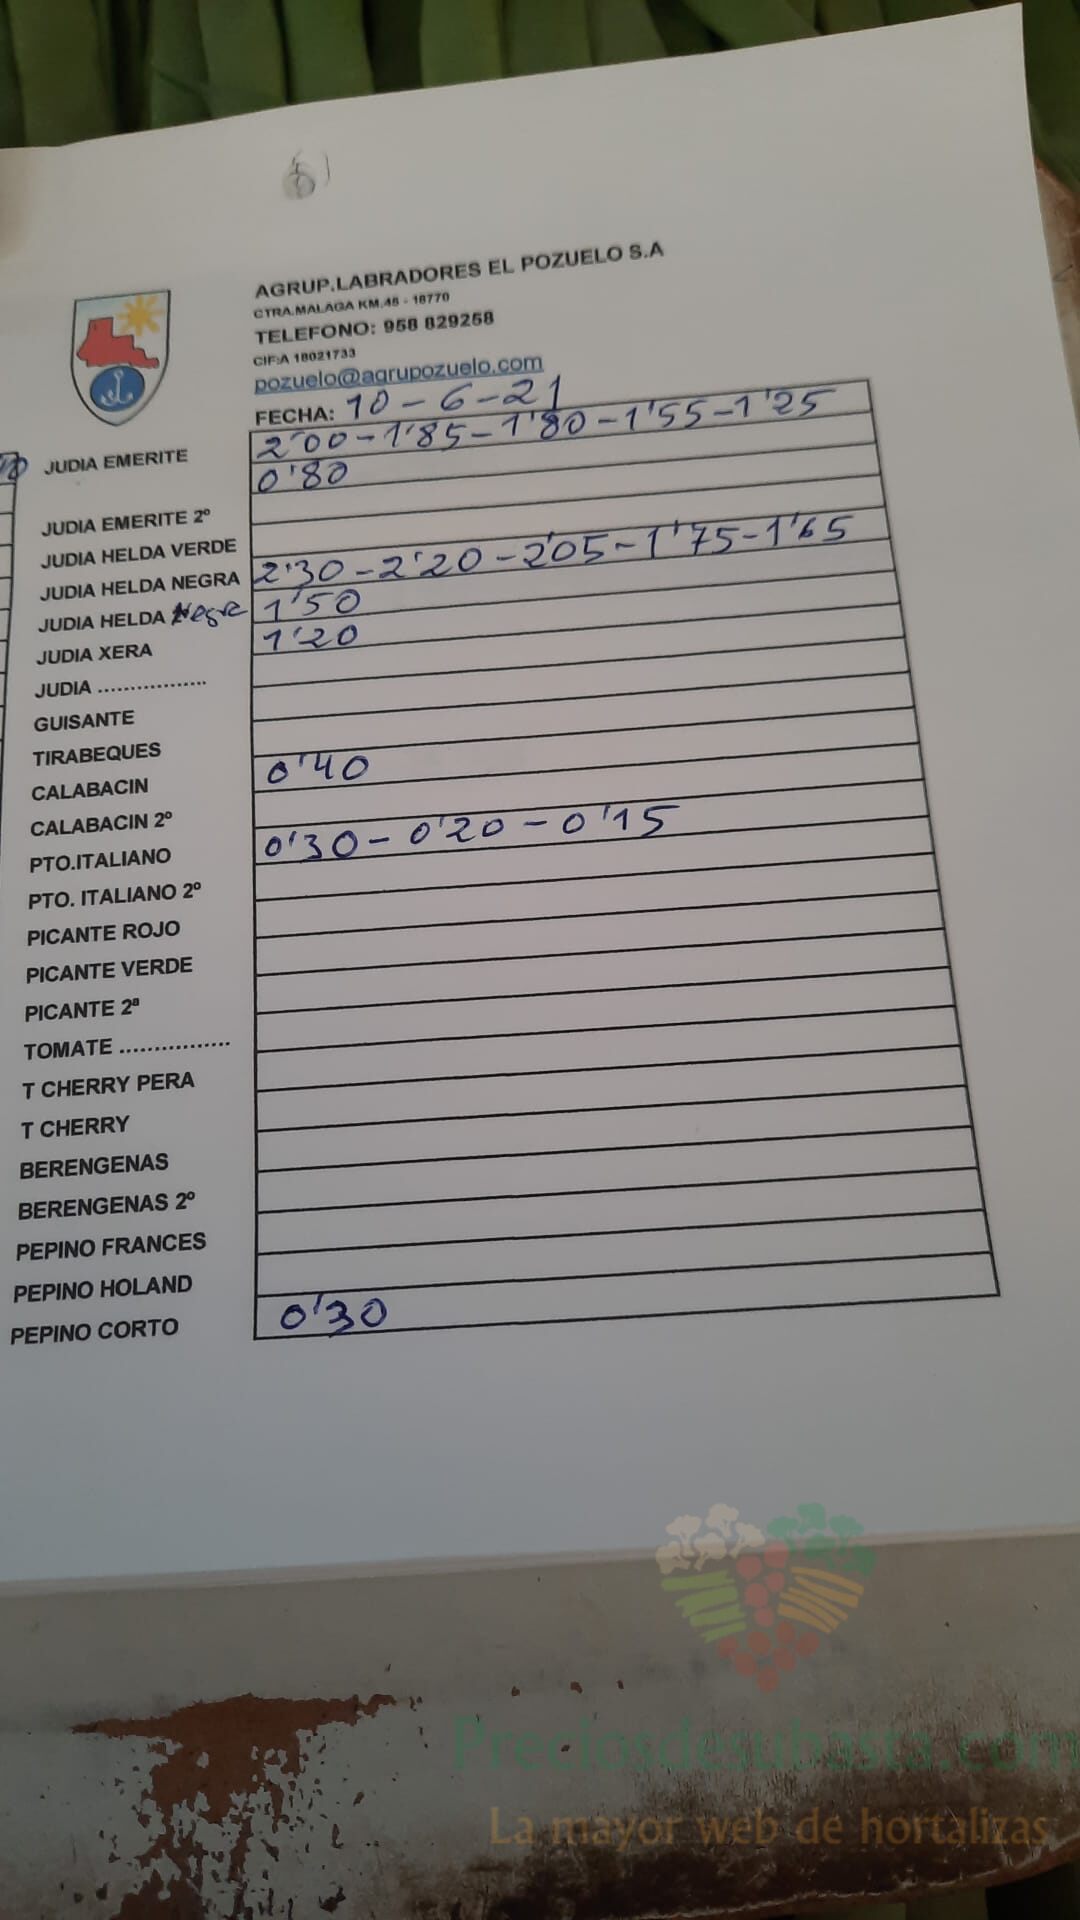 AGRUP.LABRADORES EL POZUELO S.A
CTRA.MALAGA KM.45 - 18770
TELEFONO: 958 829258
CIF:A 18021733
pozuelo@agrupozuelo.com
FECHA: 10-6-21
JUDIA EMERITE 2'00-1'85-1'80-1'55-1'25
0'80
JUDIA EMERITE 2º
JUDIA HELDA VERDE
JUDIA HELDA NEGRA 2'30-2'20-2'05-1'75-1'65
JUDIA HELDA Negra 1'50
JUDIA XERA 1'20
JUDIA ................
GUISANTE
TIRABEQUES
CALABACIN 0'40
CALABACIN 2º
PTO.ITALIANO 0'30-0'20-0'15
PTO. ITALIANO 2º
PICANTE ROJO
PICANTE VERDE
PICANTE 2ª
TOMATE ................
T CHERRY PERA
T CHERRY
BERENGENAS
BERENGENAS 2º
PEPINO FRANCES
PEPINO HOLAND
PEPINO CORTO 0'30
Preciosdesubasta.com
La mayor web de hortalizas